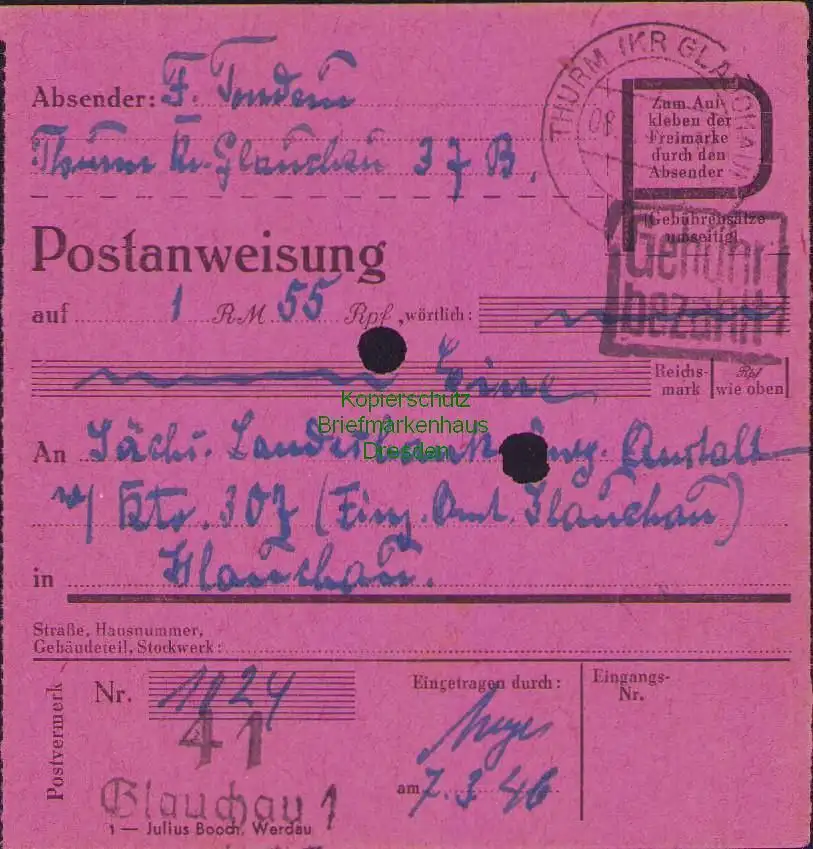 THURM (KR GLAUCHAU)
08
Absender: F.
Thurm Kr. Glauchau 37 B.
Zum Auf-
kleben der
Freimarke
durch den
Absender
(Gebührensätze
umseitig)
Gebühr
bezahlt
Postanweisung
auf 1 RM 55 Rpf, wörtlich:
Eine Reichs- Rpf
mark wie oben
Kopierschutz
Briefmarkenhaus
Dresden
An Sächs. Landesbank Zwg. Anstalt
Kto. 307 (Finz. Amt. Glauchau)
in Glauchau.
Straße, Hausnummer,
Gebäudeteil, Stockwerk:
Postvermerk
Nr. 1124
41
Glauchau 1
1 — Julius Booch, Werdau
Eingetragen durch:
am 7.3.46
Eingangs-
Nr.